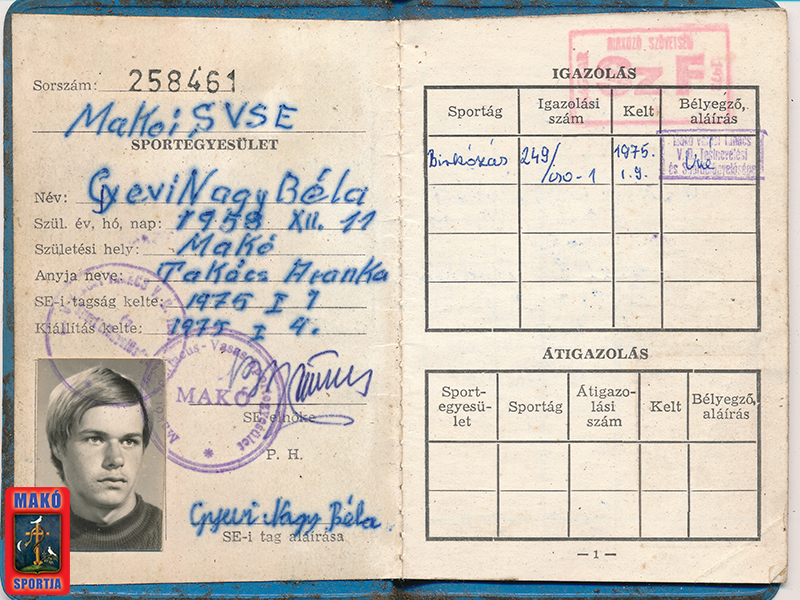 Sorszám: 258461
Makói SVSE
SPORTEGYESÜLET
Név: Gyevi Nagy Béla
Szül. év, hó, nap: 1958 XII. 11
Születési hely: Makó
Anyja neve: Takács Aranka
SE-i tagság kelte: 1975 I 9
Kiállítás kelte: 1975 I 9.
MAKÓ
SE elnöke
P. H.
Gyevi Nagy Béla
SE-i tag aláírása
MAKÓ
SPORTJA
BIRKÓZÓ SZÖVETSÉG
SzF
IGAZOLÁS
Sportág
Igazolási szám
Kelt
Bélyegző, aláírás
Birkózás
249/
1975.
I. 9.
V. B. Testnevelési
és Sportfelügyelősége
ÁTIGAZOLÁS
Sport-
egyesü-
let
Sportág
Átigazo-
lási
szám
Kelt
Bélyegző,
aláírás
— 1 —